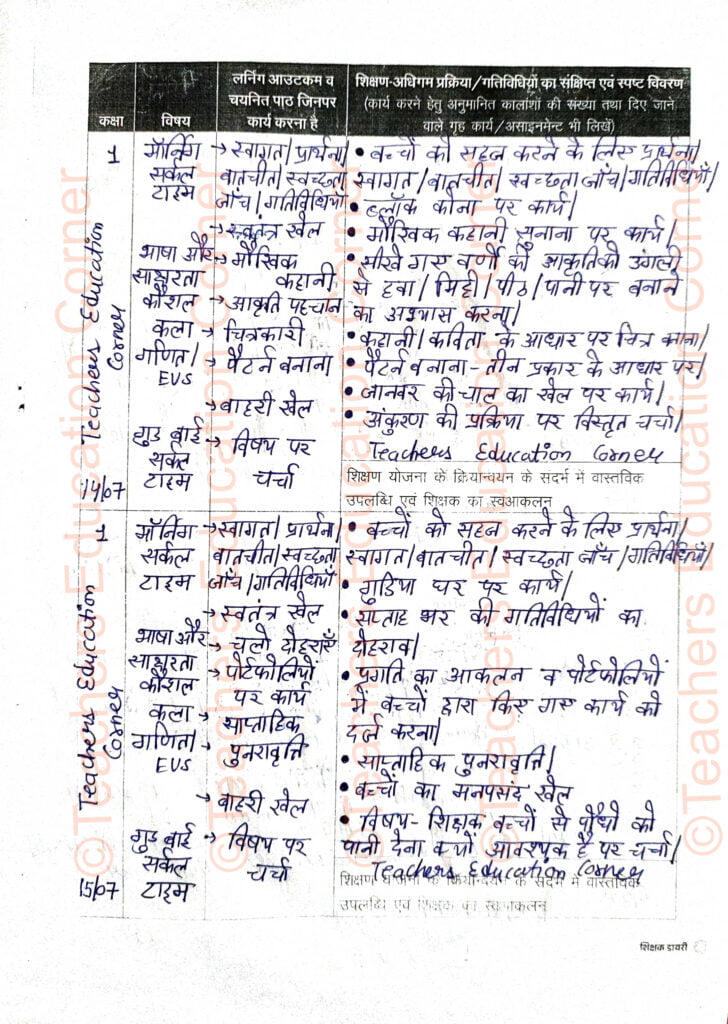 कक्षा
विषय
लर्निंग आउटकम व
चयनित पाठ जिनपर
कार्य करना है
शिक्षण-अधिगम प्रक्रिया/गतिविधियों का संक्षिप्त एवं स्पष्ट विवरण
(कार्य करने हेतु अनुमानित कालांशों की संख्या तथा दिए जाने
वाले गृह कार्य/असाइनमेन्ट भी लिखें)
1
14/07
Teachers Education
Corner
मॉर्निंग
सर्कल
टाइम
भाषा और
साक्षरता
कौशल
कला
गणित/
EVS
गुड बाई
सर्कल
टाइम
→ स्वागत/प्रार्थना/
बातचीत/स्वच्छता
जाँच/गतिविधियाँ
→ स्वतंत्र खेल
→ मौखिक
कहानी
→ आकृति पहचान
→ चित्रकारी
→ पैटर्न बनाना
→ बाहरी खेल
→ विषय पर
चर्चा
• बच्चों को सहज करने के लिए प्रार्थना/
स्वागत/बातचीत/स्वच्छता जाँच/गतिविधियाँ/
• ब्लॉक कोना पर कार्य/
• मौखिक कहानी सुनाना पर कार्य/
• सीखे गए वर्णों की आकृति को उंगली
से हवा/मिट्टी/पीठ/पानी पर बनाने
का अभ्यास करना/
• कहानी/कविता के आधार पर चित्र बनाना/
• पैटर्न बनाना - तीन प्रकार के आधार पर/
• जानवर की चाल का खेल पर कार्य/
• अंकुरण की प्रक्रिया पर विस्तृत चर्चा/
Teachers Education Corner
शिक्षण योजना के क्रियान्वयन के संदर्भ में वास्तविक
उपलब्धि एवं शिक्षक का स्वआकलन
1
15/07
Teachers Education
Corner
मॉर्निंग
सर्कल
टाइम
भाषा और
साक्षरता
कौशल
कला
गणित/
EVS
गुड बाई
सर्कल
टाइम
→ स्वागत/प्रार्थना/
बातचीत/स्वच्छता
जाँच/गतिविधियाँ
→ स्वतंत्र खेल
→ चलो दोहराएँ
→ पोर्टफोलियों
पर कार्य
→ साप्ताहिक
पुनरावृत्ति
→ बाहरी खेल
→ विषय पर
चर्चा
• बच्चों को सहज करने के लिए प्रार्थना/
स्वागत/बातचीत/स्वच्छता जाँच/गतिविधियाँ/
• गुडिया घर पर कार्य/
• सप्ताह भर की गतिविधियों का
दोहराव/
• प्रगति का आकलन व पोर्टफोलियों
में बच्चों द्वारा किए गए कार्य को
दर्ज करना/
• साप्ताहिक पुनरावृत्ति/
• बच्चों का मनपसंद खेल
• विषय - शिक्षक बच्चों से पौधों को
पानी देना क्यों आवश्यक है पर चर्चा/
Teachers Education Corner
शिक्षण योजना के क्रियान्वयन के संदर्भ में वास्तविक
उपलब्धि एवं शिक्षक का स्वआकलन
शिक्षक डायरी
©Teachers Education Corner
©Teachers Education Corner
©Teachers Education Corner
©Teachers Education Corner
©Teachers Education Corner